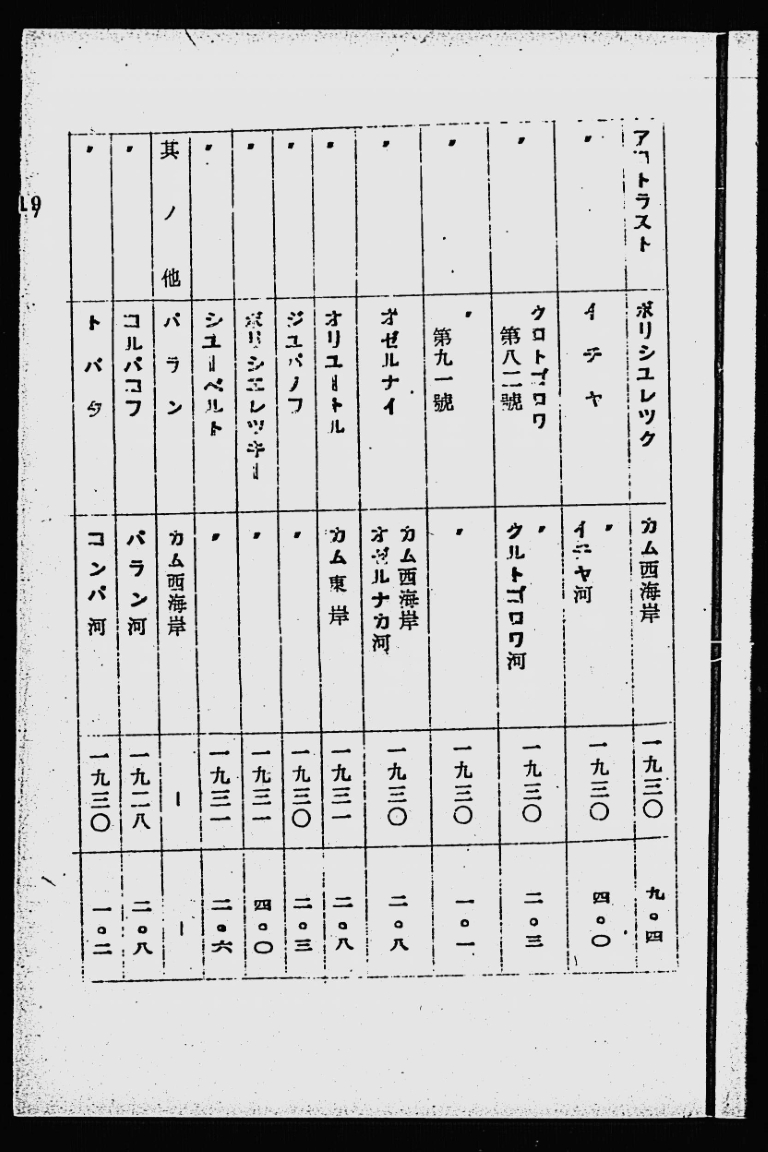 アコトラスト ボリシユレツク カム西海岸 一九三〇 九。四
〃 イチヤ 〃 イチヤ河 一九三〇 四。〇
〃 クロトゴロワ 第八二號 〃 クルトゴロワ河 一九三〇 二。三
〃 〃 第九一號 〃 一九三〇 一。一
〃 オゼルナイ カム西海岸 オゼルナカ河 一九三〇 二。八
〃 オリユートル カム東岸 一九三一 二。八
〃 ジユパノフ 〃 一九三〇 二。三
〃 ボリシエレツキー 〃 一九三一 四。〇
〃 シユーベルト 〃 一九三一 二。六
其ノ他 パラン カム西海岸 ー ー
〃 コルパコフ パラン河 一九二八 二。八
〃 トパタ コンパ河 一九三〇 一。二
19